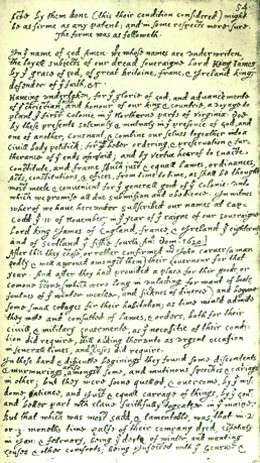 54
to be by them done (this their condition considered) might
be as firme as any patent; and in some respects more sure.
The forme was as followeth.
In yᵉ name of God Amen. We whose names are underwriten,
the loyall subjects of our dread soveraigne Lord King James,
by yᵉ grace of God, of great Britaine, franc, & Ireland king,
defender of yᵉ faith, &c.
Haveing undertaken, for yᵉ glorie of God, and advancemente
of yᵉ christian faith and honour of our king & countrie, a voyage to
plant yᵉ first colonie in yᵉ Northerne parts of Virginia. Doe
by these presents solemnly & mutualy in yᵉ presence of God, and
one of another, covenant, & combine our selves togeather into a
Civill body politick; for our better ordering, & preservation & fur-
therance of yᵉ ends aforesaid; and by vertue hearof to enacte,
constitute, and frame shuch just & equall lawes, ordinances,
Acts, constitutions, & offices, from time to time, as shall be thought
most meete & convenient for yᵉ generall good of yᵉ colonie: unto
which we promise all due submission and obedience. In witnes
wherof we have hereunder subscribed our names at Cap-
Codd yᵉ 11 of November, in yᵉ year of yᵉ raigne of our soveraigne
Lord king James of England, france, & Ireland yᵉ eighteenth
and of Scotland yᵉ fiftie fourth. Ano Dom. 1620.
After this they chose, or rather confirmed mr John Carver (a man
godly & well approved amongst them) their Governour for that
year. And after they had provided a place for their goods, or
comone store, (which were long in unlading for want of boats,
foulnes of yᵉ winter weather, and sicknes of diverce) and begune
some small cottages for their habitation; as time would admitte
they mette and consulted of lawes, & orders, both for their
civill & military Governmente, as yᵉ necessitie of their condi-
tion did require, still adding therunto as urgent occasion
in severall times, and cases did require.
In these hard & difficulte beginings they found some discontents
& murmurings arise amongst some, and mutinous speeches & carriags
in other; but they were soone quelled, & overcome, by yᵉ wis-
dome, patience, and just & equall carrage of things, by yᵉ Govr
and better part wch clave faithfully togeather in yᵉ maine.
But that which was most sadd, & lamentable, was, that in 2
or 3 moneths time halfe of their company dyed, espetialy
in Jan: & february, being yᵉ depth of winter, and wanting
houses & other comforts; being infected with yᵉ scurvie &